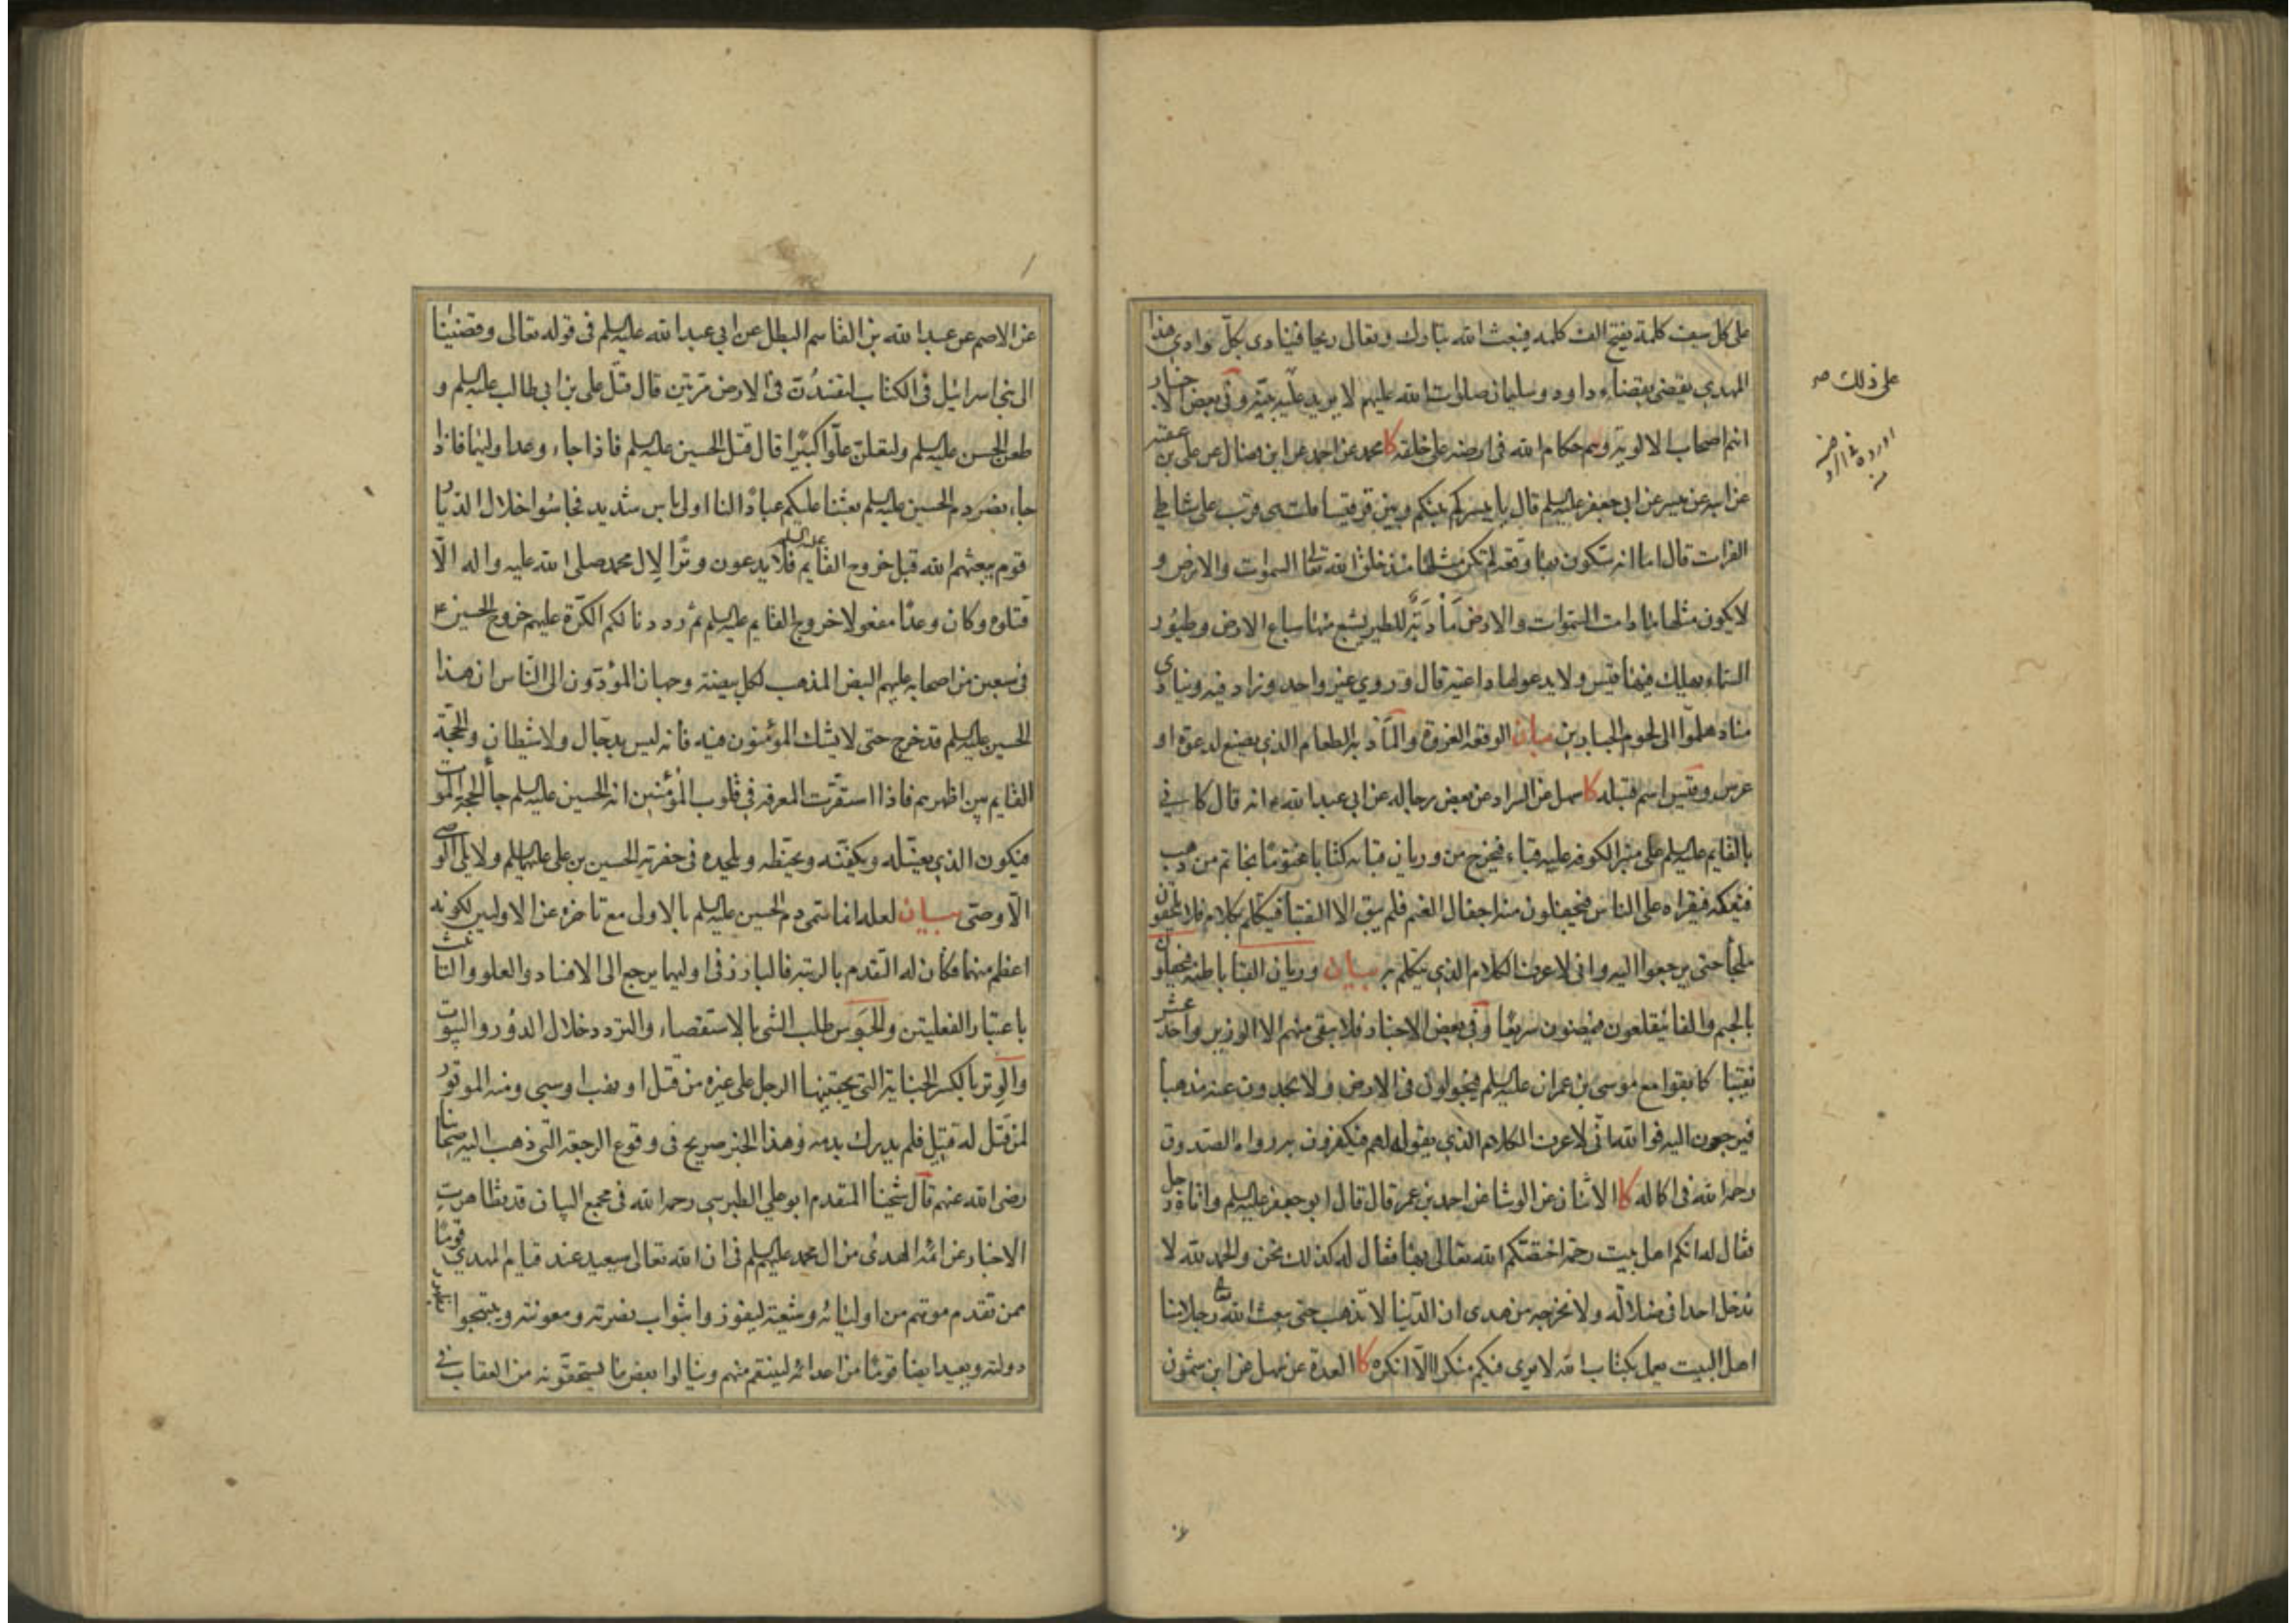 على كل سيف كلمة يفتح الف كلمة فيبعث الله تبارك وتعالى ريحا فينادي بكلّ وادي هذا
المهدي يقضي بقضاء داود وسليمان صلوات الله عليهم لا يريد عليه بيّنة وفي بعض الاخبار
انهم اصحاب الالوية وهم حكام الله في ارضه على خلقه كا محمد عن احمد عن ابن فضال عن علي بن عقبة
عن ابيه عن ميسر عن ابي جعفر عليه السلم قال يا ميسر كم بينكم وبين قرقيسا قلت هي قريب على شاطئ
الفرات قال اما انه ستكون بها وقعة لم تكن مثلها منذ خلق الله تعالى السموات والارض و
لا يكون مثلها ما دامت السّموات والارض مَأْدَبَة للطير يشبع منها سباع الارض وطيور
السّماء يهلك فيها قيس ولا يدعو لها داعية قال وروى غير واحد وزاد فيه وينادي
مناد هلمّوا الى لحوم الجبارين بيان الوقعة الغزوة والمأدبة الطعام الذي يصنع لدعوة او
عرس وقيس اسم قبيلة كا سهل عن السراد عن بعض رجاله عن ابي عبد الله ع انه قال كاني
بالقايم عليه السلم على منبر الكوفة عليه قباء فيخرج من وريان قبائه كتابا مختوما بخاتم من ذهب
فيفكه فيقراه على الناس فيجفلون عنه اجفال الغنم فلم يبق الا النقباء فيتكلم بكلام فلا يلحقون
ملجأ حتى يرجعوا اليه واني لاعرف الكلام الذي يتكلم به بيان وريان القبا باطنه فيجفلون
بالجيم والفا ينقلعون فيمضون سريعا وفي بعض الاخبار فلا يبقى منهم الا الوزير واحد عشر
نقيبا كما بقوا مع موسى بن عمران عليه السلم فيجولون في الارض ولا يجدون عنه مذهبا
فيرجعون اليه فوالله اني لاعرف الكلام الذي يقوله لهم فيكفرون به رواه الصدوق
رحمه الله في اكماله كا الاثنان عن الوشا عن احمد بن عمر قال قال ابو جعفر عليه السلم واتاه رجل
فقال له انكم اهل بيت رحمة اختصّكم الله تعالى بها فقال له كذلك نحن والحمد لله لا
ندخل احدا في ضلالة ولا نخرجه من هدى ان الدّنيا لا تذهب حتى يبعث الله تعالى رجلا منا
اهل البيت يعمل بكتاب الله لا يرى فيكم منكرا الا انكره كا العدة عن سهل عن ابن شمون
على ذلك صه
عن الاصم عن عبد الله بن القاسم البطل عن ابي عبد الله عليه السلم في قوله تعالى وقضينا
الى بني اسرائيل في الكتاب لتفسدُنّ في الارض مرّتين قال قتل علي بن ابي طالب عليه السلم و
طعن الحسن عليه السلم ولتعلنّ علوّا كبيرًا قال قتل الحسين عليه السلم فاذا جاء وعد اوليهما فاذا
جاء نصر دم الحسين عليه السلم بعثنا عليكم عبادًا لنا اولي باس شديد فجاسُوا خلال الديّار
قوم يبعثهم الله قبل خروج القايم عليه السلم فلا يدعون وترًا لآل محمد صلى الله عليه واله الّا
قتلوه وكان وعدًا مفعولا خروج القايم عليه السلم ثم رددنا لكم الكرّة عليهم خروج الحسين ع
في سبعين من اصحابه عليهم البيض المذهب لكل بيضة وجهان المؤدّون الى النّاس ان هذا
الحسين عليه السلم قد خرج حتى لا يشك المؤمنون فيه فانه ليس بدجّال ولا شيطان والحجّة
القايم بين اظهرهم فاذا استقرّت المعرفة في قلوب المؤمنين انه الحسين عليه السلم جاء الحجة الموت
فيكون الذي يغسّله ويكفّنه ويحنّطه ويلحده في حفرته الحسين بن علي عليهما السلم ولا يلي الوصي
الّا وصي بيان لعله انما سمي دم الحسين عليه السلم بالاولى مع تاخره عن الاوليين لكونه
اعظم منهما فكان له التّقدم بالرتبة فالبارز في اوليهما يرجع الى الافساد والعلو والتانيث
باعتبار الفعليتين والجَوس طلب الشي بالاستقصاء والتردد خلال الدور والبيوت
والوِتر بالكسر الجناية التي يجنيها الرجل على غيره من قتل او نهب او سبي ومنه الموتور
لمن قتل له قتيل فلم يدرك بدمه وهذا الخبر صريح في وقوع الرجعة التّي ذهب اليه اصحابنا
رضي الله عنهم قال شيخنا المتقدم ابو علي الطبرسي رحمه الله في مجمع البيان قد تظاهرت
الاخبار عن ائمة الهدى من آل محمد عليهم السلم في ان الله تعالى سيعيد عند قيام المهدي قومًا
ممن تقدم موتهم من اوليائه وشيعته ليفوزوا بثواب نصرته ومعونته ويبتهجوا بظهور
دولته ويعيد ايضا قومًا من اعدائه لينتقم منهم وينالوا بعض ما يستحقّونه من العقاب في